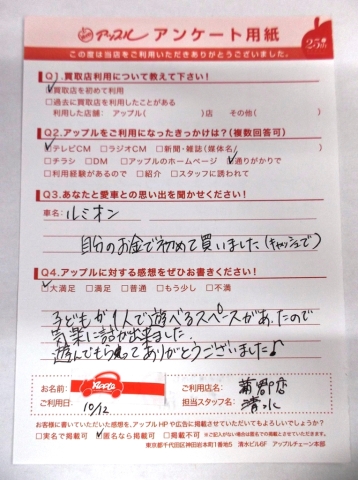 アップル アンケート用紙
25th
この度は当店をご利用いただきありがとうございました。
Q1.買取店利用について教えて下さい!
□買取店を初めて利用
□過去に買取店を利用したことがある
利用した店舗: アップル( )店 その他( )
Q2.アップルをご利用になったきっかけは?(複数回答可)
□テレビCM □ラジオCM □新聞・雑誌(媒体名/ )
□チラシ □DM □アップルのホームページ □通りがかりで
□利用経験があるので □紹介 □スタッフに誘われて
Q3.あなたと愛車との思い出を聞かせください!
車名: ルミオン
自分のお金で初めて買いました(キャッシュで)
Q4.アップルに対する感想をぜひお書きください!
□大満足 □満足 □普通 □もう少し □不満
子どもが1人で遊べるスペースがあったので
気楽に話が出来ました。
遊んでもらってありがとうございました♪
お名前:
ご利用店名: 蒲郡店
ご利用日: 10/12
担当スタッフ名: 清水
お客様に書いていただいた感想を、アップルHPや広告に掲載させていただいてもよろしいでしょうか?
□実名で掲載可 □匿名なら掲載可 □掲載不可 ※ご記入がない場合は匿名での掲載とさせていただきます。
東京都千代田区神田岩本町1番地5 清水ビル6F アップルチェーン本部